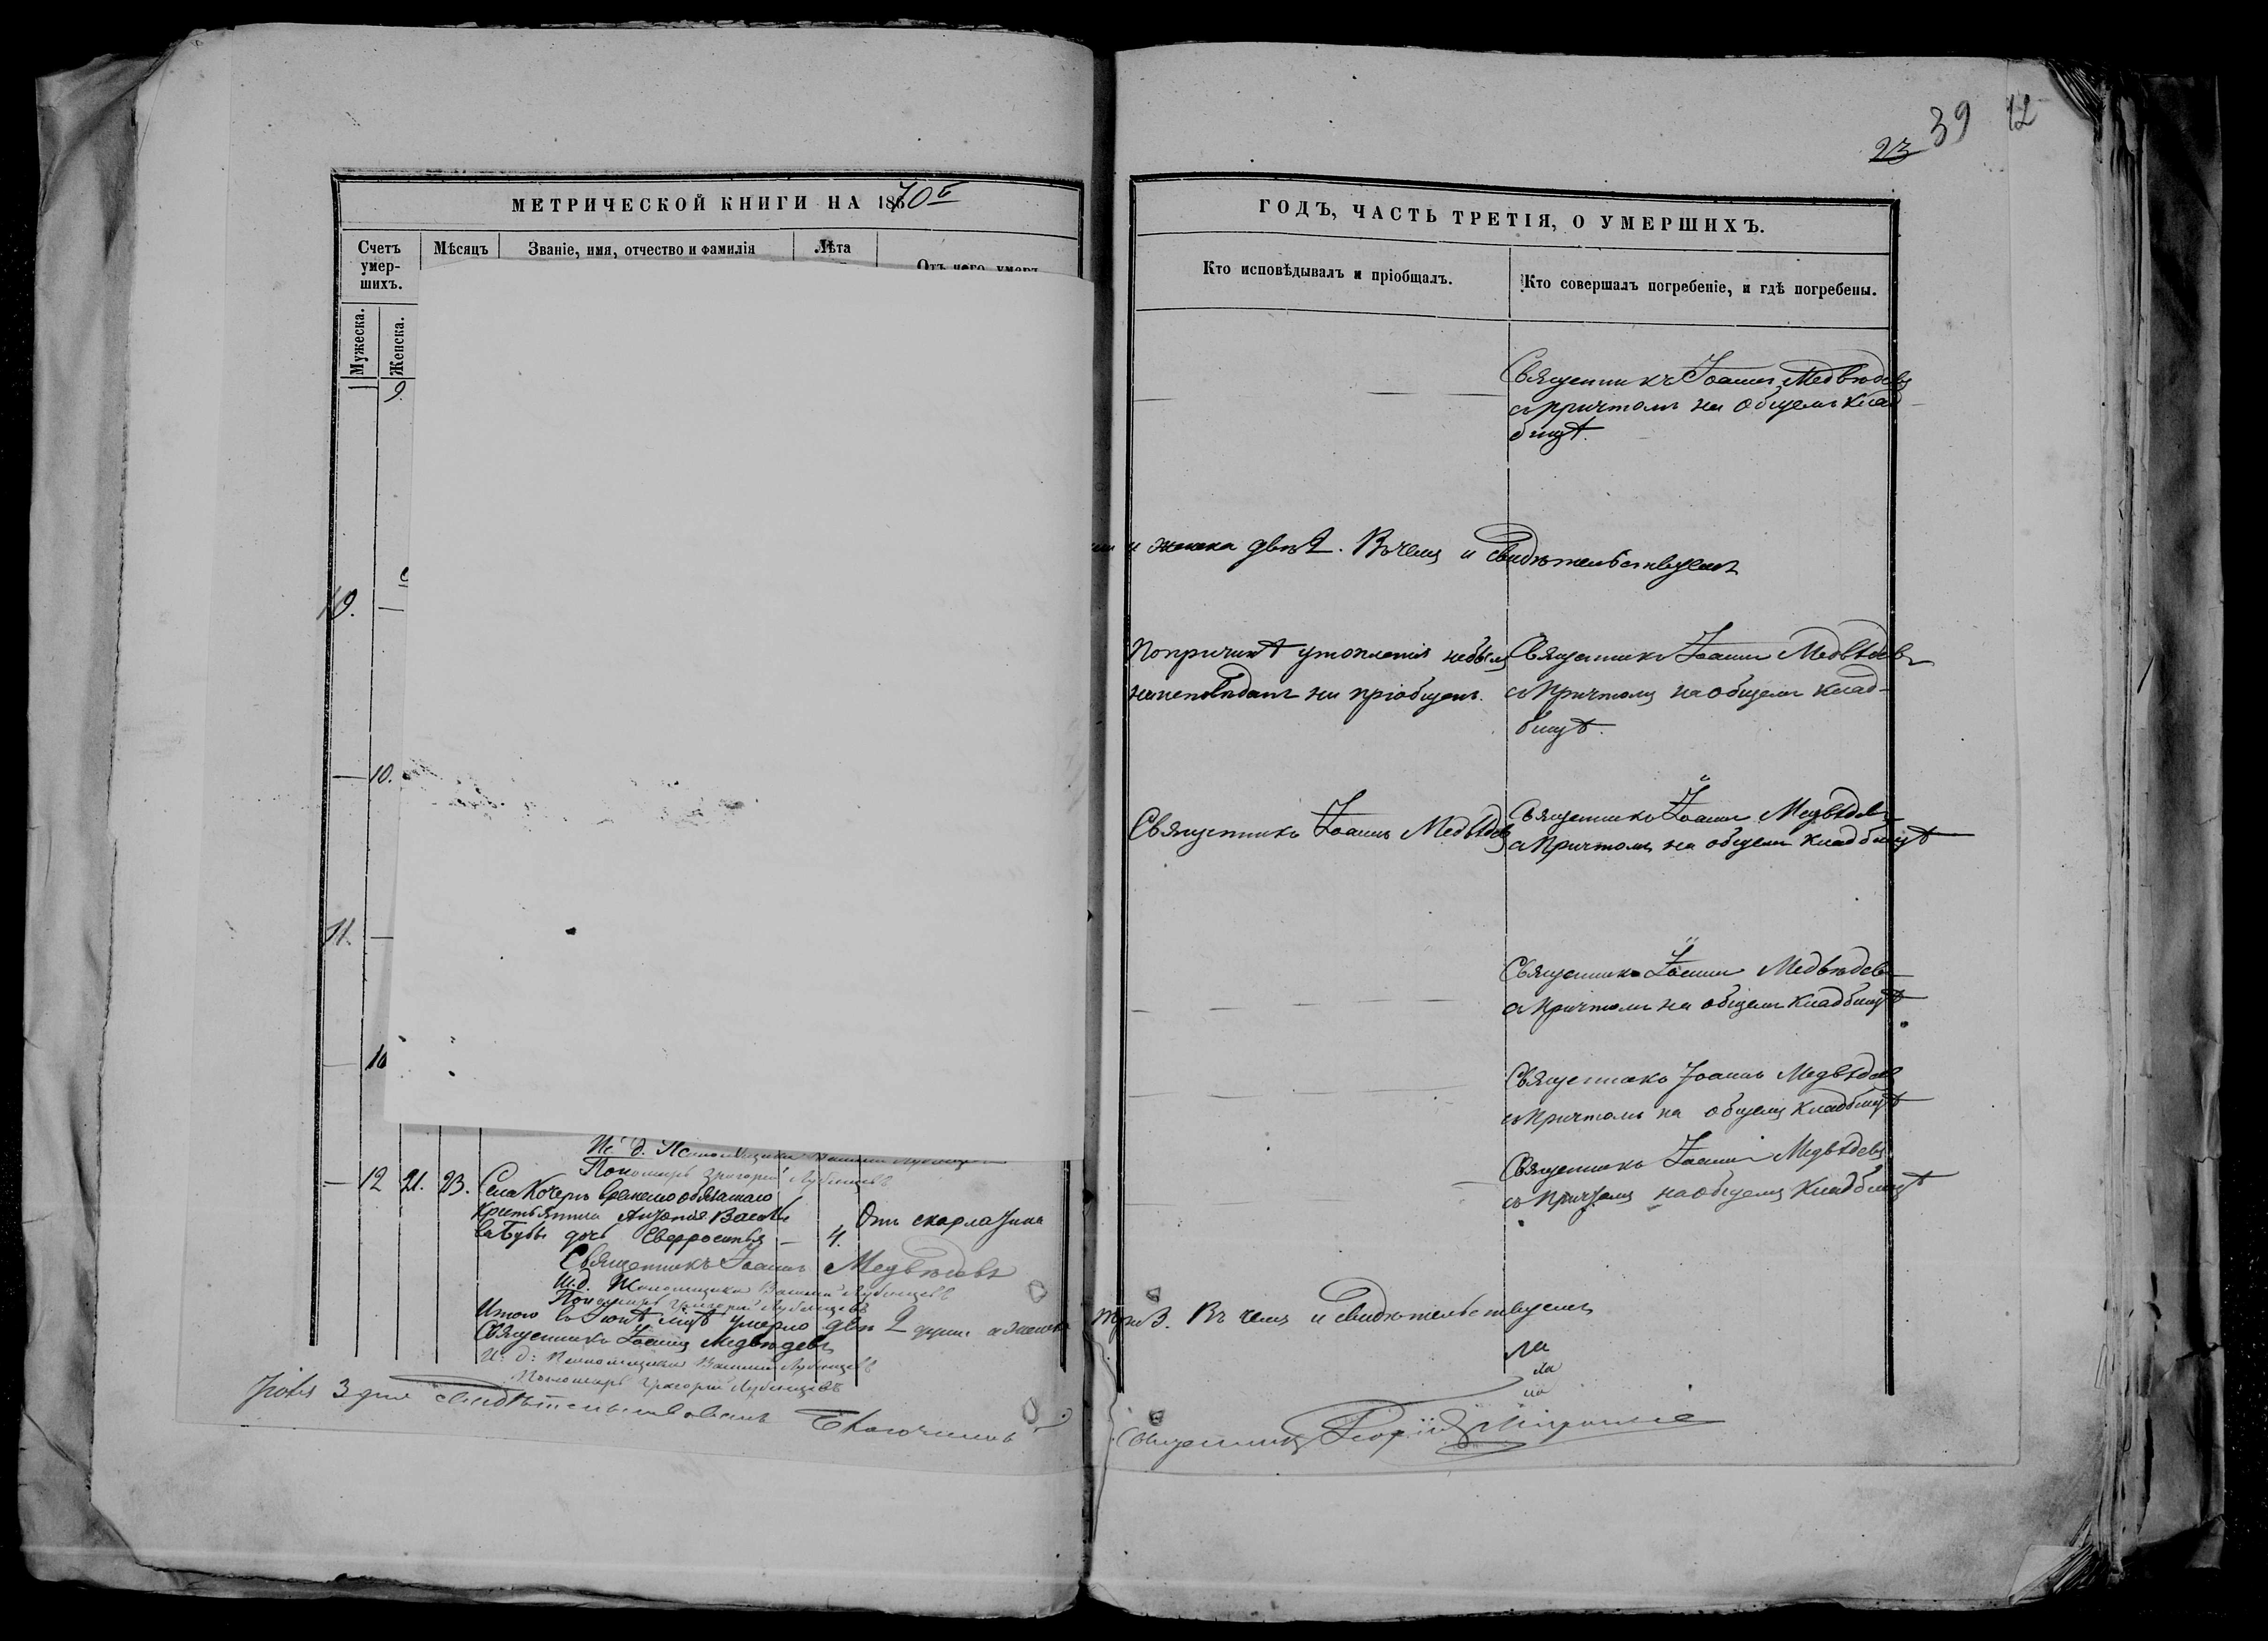 МЕТРИЧЕСКОЙ КНИГИ НА 1870й
Счетъ умер-шихъ.
Мѣсяцъ
Званіе, имя, отчество и фамилія
Лѣта
Отъ чего умеръ
Мужеска.
Женска.
9.
10. —
— 10.
11. —
— 10
И. д. Псаломщика
Пономарь Григорій
— 12 21. 23. Села Кочеръ временно обязаннаго
крестьянина Василь
дочь — 4.
Отъ скарлатины
Священникъ Іоаннъ Медвѣдевъ
И. д. Псаломщика Василій
Пономарь Григорій
Итого въ Іюлѣ м҃цѣ умерло двѣ 2 души а женска
Священникъ Іоаннъ Медвѣдевъ
И: д: Псаломщика Василій
Пономарь Григорій
3 дня свидѣтельствовалъ Благочинный
23 39 12
ГОДЪ, ЧАСТЬ ТРЕТІЯ, О УМЕРШИХЪ.
Кто исповѣдывалъ и пріобщалъ.
Кто совершалъ погребеніе, и гдѣ погребены.
Священникъ Іоаннъ Медвѣдевъ
съ причтомъ на общемъ клад
бищѣ.
и женска двѣ 2. Въ чемъ и свидѣтельствуемъ
По причинѣ утопленія небылъ
ниисповѣданъ ни пріобщенъ.
Священникъ Іоаннъ Медвѣдевъ
съ Причтомъ на общемъ клад-
бищѣ.
Священникъ Іоаннъ Медвѣдевъ
Священникъ Іоаннъ Медвѣдевъ
съ Причтомъ на общемъ кладбищѣ
Священникъ Іоаннъ Медвѣдевъ
съ Причтомъ на общемъ кладбищѣ
Священникъ Іоаннъ Медвѣдевъ
съ Причтомъ на общемъ кладбищѣ
Священникъ Іоаннъ Медвѣдевъ
съ Причтомъ на общемъ кладбищѣ
три 3. Въ чемъ и свидѣтельствуемъ
Священникъ Георгій